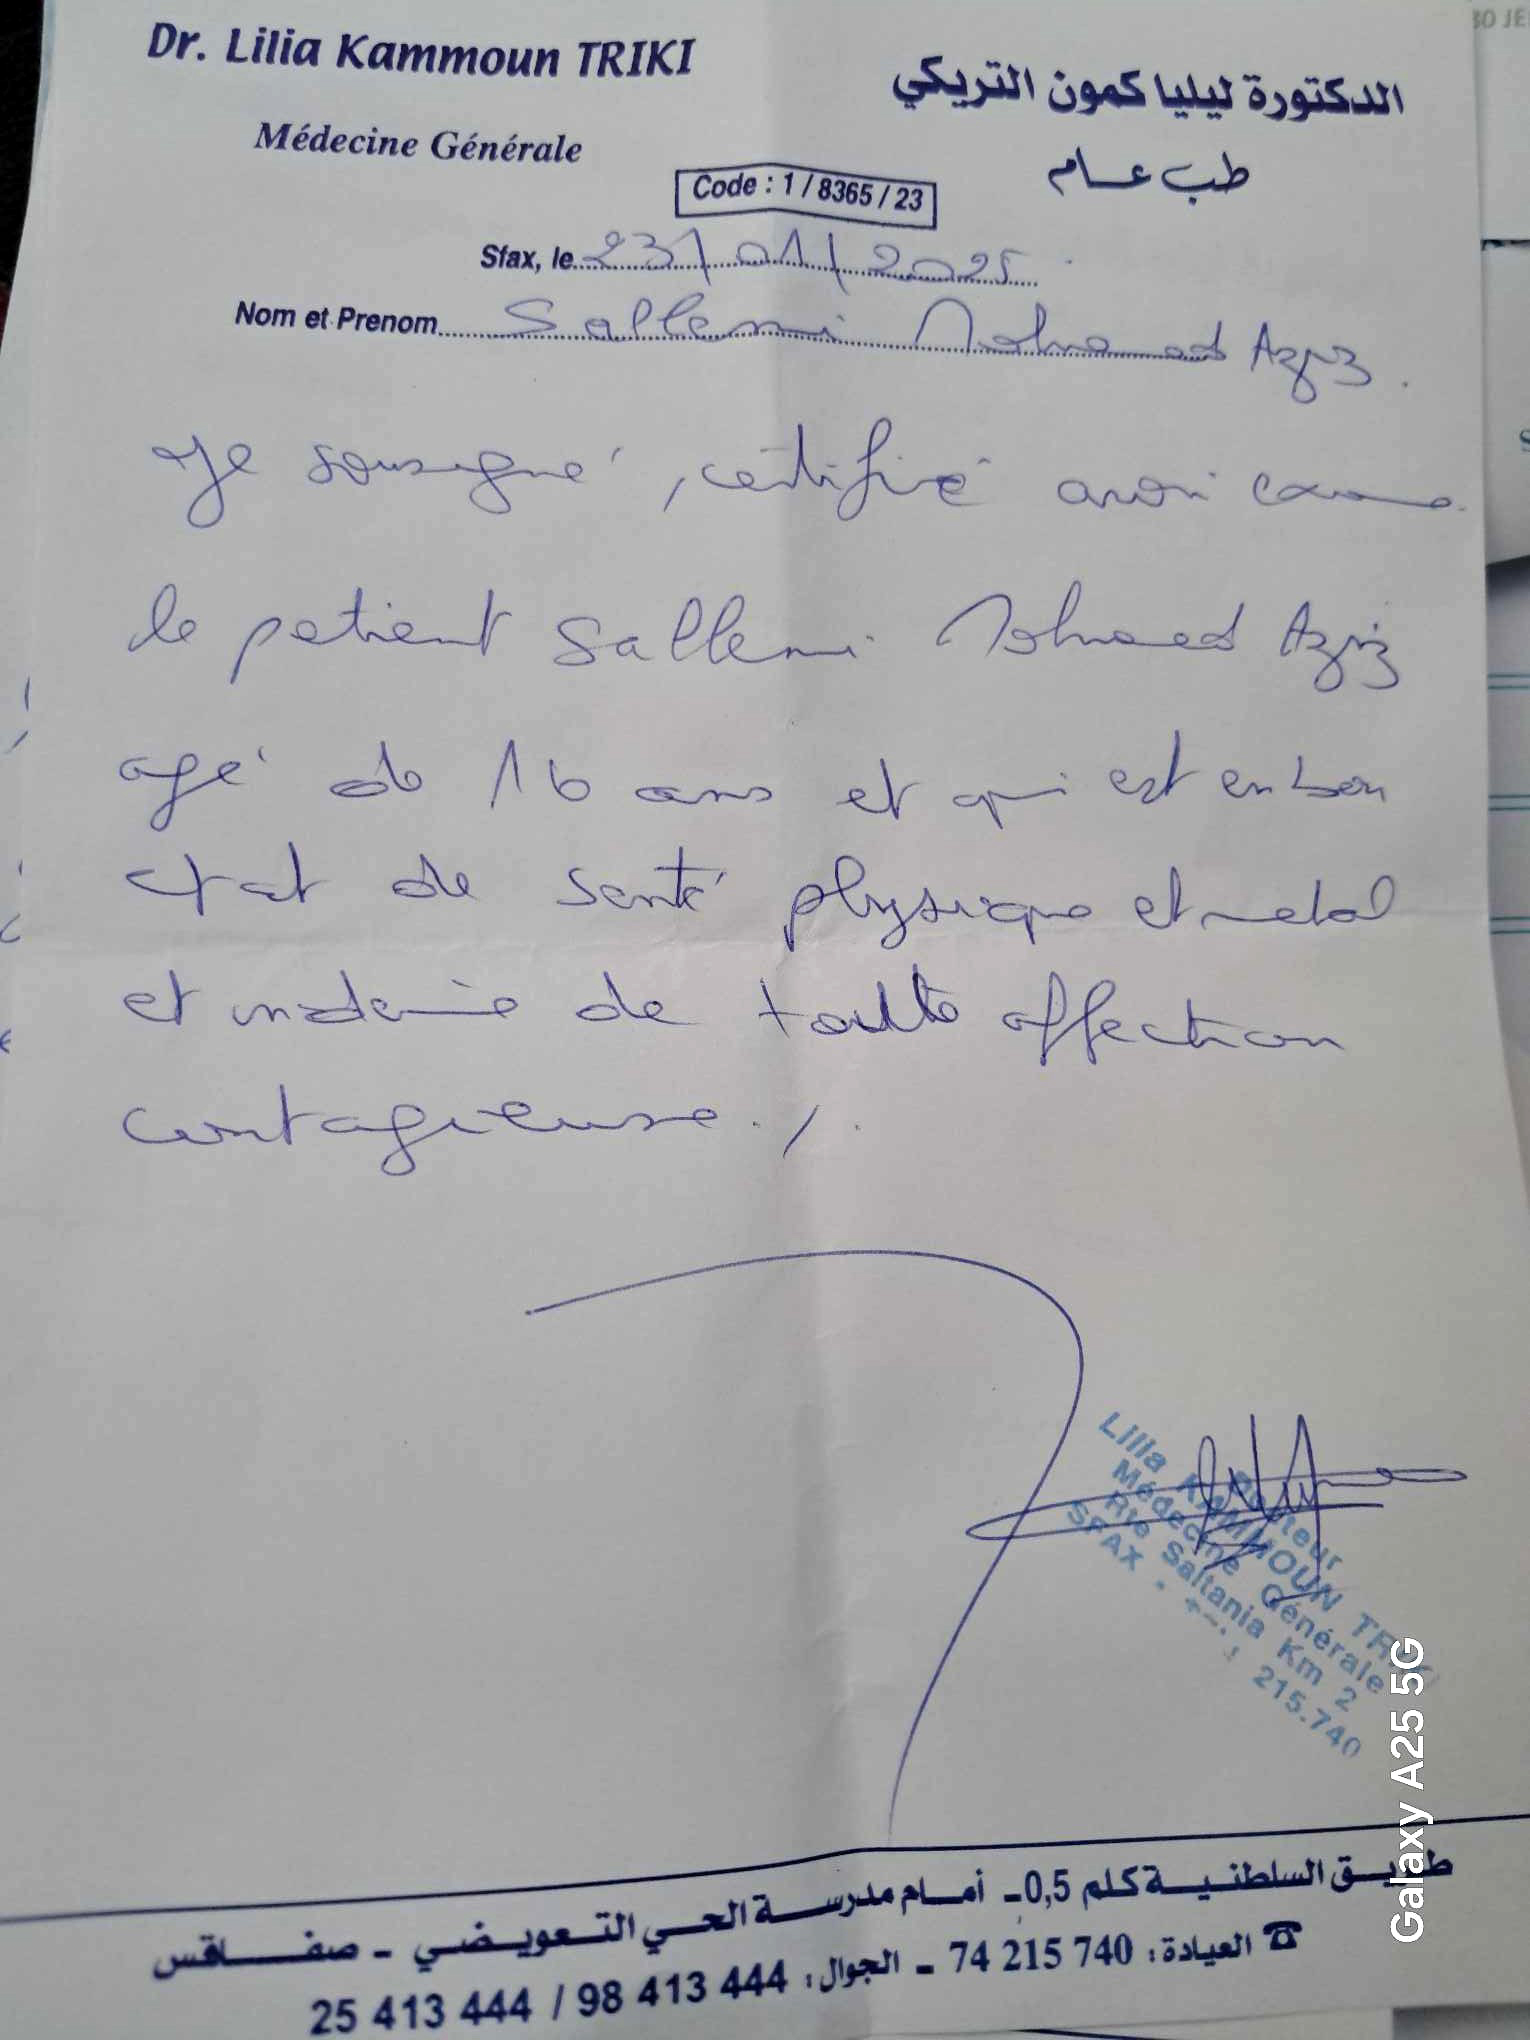 Dr. Lilia Kammoun TRIKI
Médecine Générale
الدكتورة ليليا كمون التريكي
طب عام
Code : 1 / 8365 / 23
Sfax, le 23/01/2025
Nom et Prenom Sallemi Mohamed Aziz.
Je sousigné, cértifié avoir
le patient Sallemi Mohamed Aziz
agé de 16 ans et qui est en bon
etat de santé physique et
et de toutte affection
contagieuse./.
Docteur
Lilia KAMMOUN TRIKI
Médecine Générale
Rte Saltania Km 2
SFAX - 215.740
طريق السلطنية كلم 0,5 - أمام مدرسة الحي التعويضي - صفاقس
☎ العيادة : 740 215 74 - الجوال : 444 413 98 / 444 413 25
Galaxy A25 5G